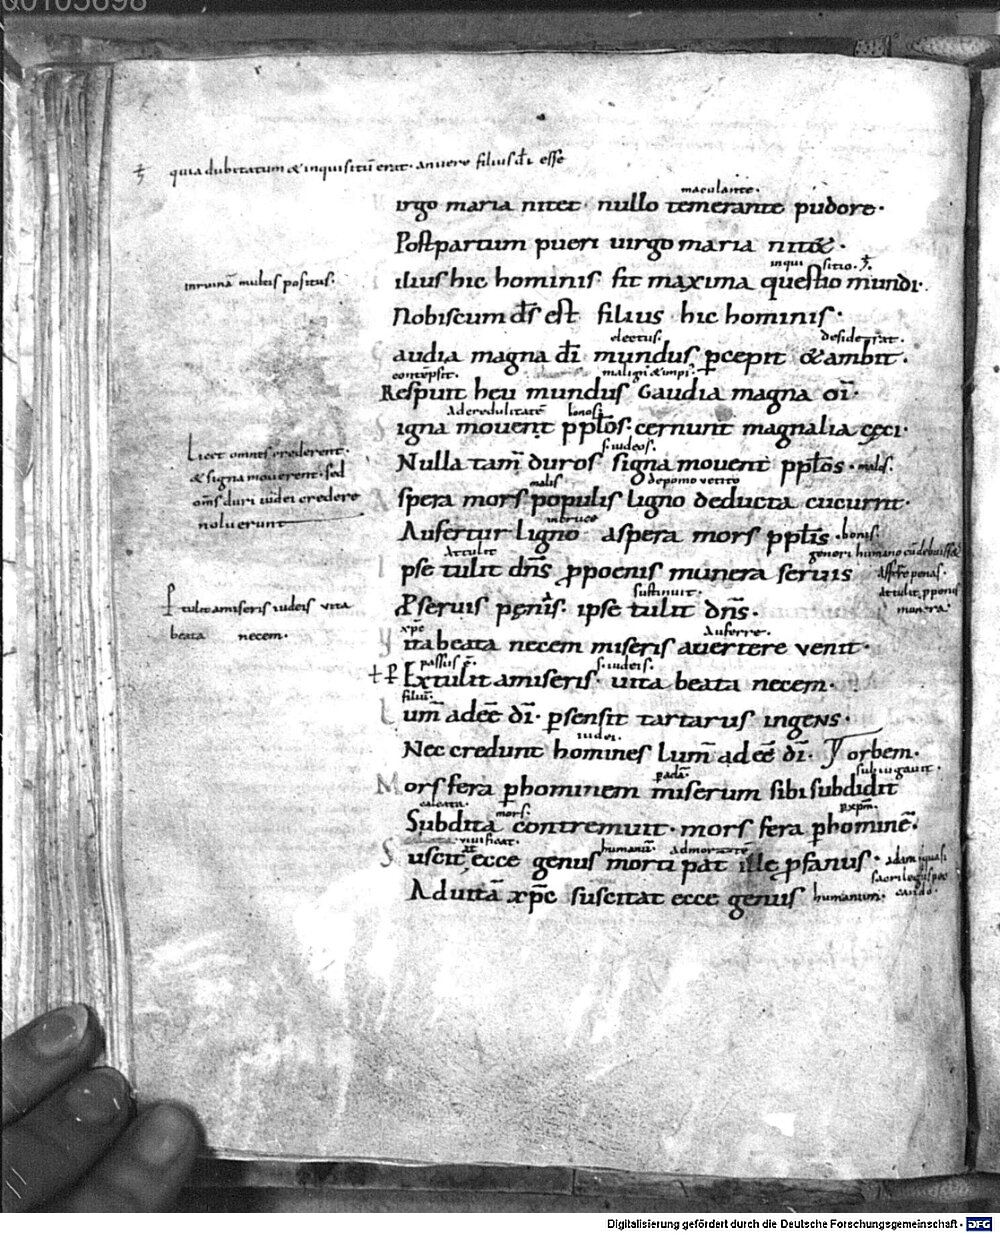 00105698
quia dubitatum & inquisitū erat. an uere filius dī esse
maculante.
irgo maria nitet. nullo temerante pudore.
Post partum pueri uirgo maria nit&.
inqui sitio.
ilius hic hominis fit maxima questio mundi.
in ruinā multis positus.
Nobiscum d̄s est filius hic hominis.
electus. desiderat.
audia magna dī mundus pcepit & ambit.
contēpsit. maligni & impi.
Respuit heu mundus Gaudia magna dī.
Ad credulitatē bonos
S igna mouent pplōs. cernunt magnalia ceci.
s. iudeos.
Nulla tam̄ duros signa mouent pplōs. malis.
Licet omnes crederent.
& signa mouerent. sed
om̄s duri iudei credere
noluerunt
malis de pomo vetito
A spera mors populis ligno deducta cucurrit.
in cruce
Aufertur ligno aspera mors pplīs. bonis.
Attulit generi humano cū debuiss&
I pse tulit dn̄s ppoenis munera seruis
Afferre penas.
Attulit p penis
munera.
sustinuit.
P seruis penis. ipse tulit dn̄s.
xp̄c Auferre.
V ita beata necem miseris auertere venit.
P tulit a miseris iudeis vita
beata necem.
passus ē. s. iudeis.
Extulit a miseris. uita beata necem.
filiū.
L um̄ adeē dī. psensit tartarus ingens.
iudei.
Nec credunt homines lum̄ adeē dī. orbem.
adā. subiugauit.
M ors fera phominem miserum sibi subdidit
calcata. mors. p xpm̄.
Subdita contremuit. mors fera phominē.
viuificat. humanū. ad mortē
S uscit& ecce genus morti dat ille pfanus. adam quasi
sacrilegus
Ad uitā xp̄c suscitat ecce genus humanum.
Digitalisierung gefördert durch die Deutsche Forschungsgemeinschaft - DFG